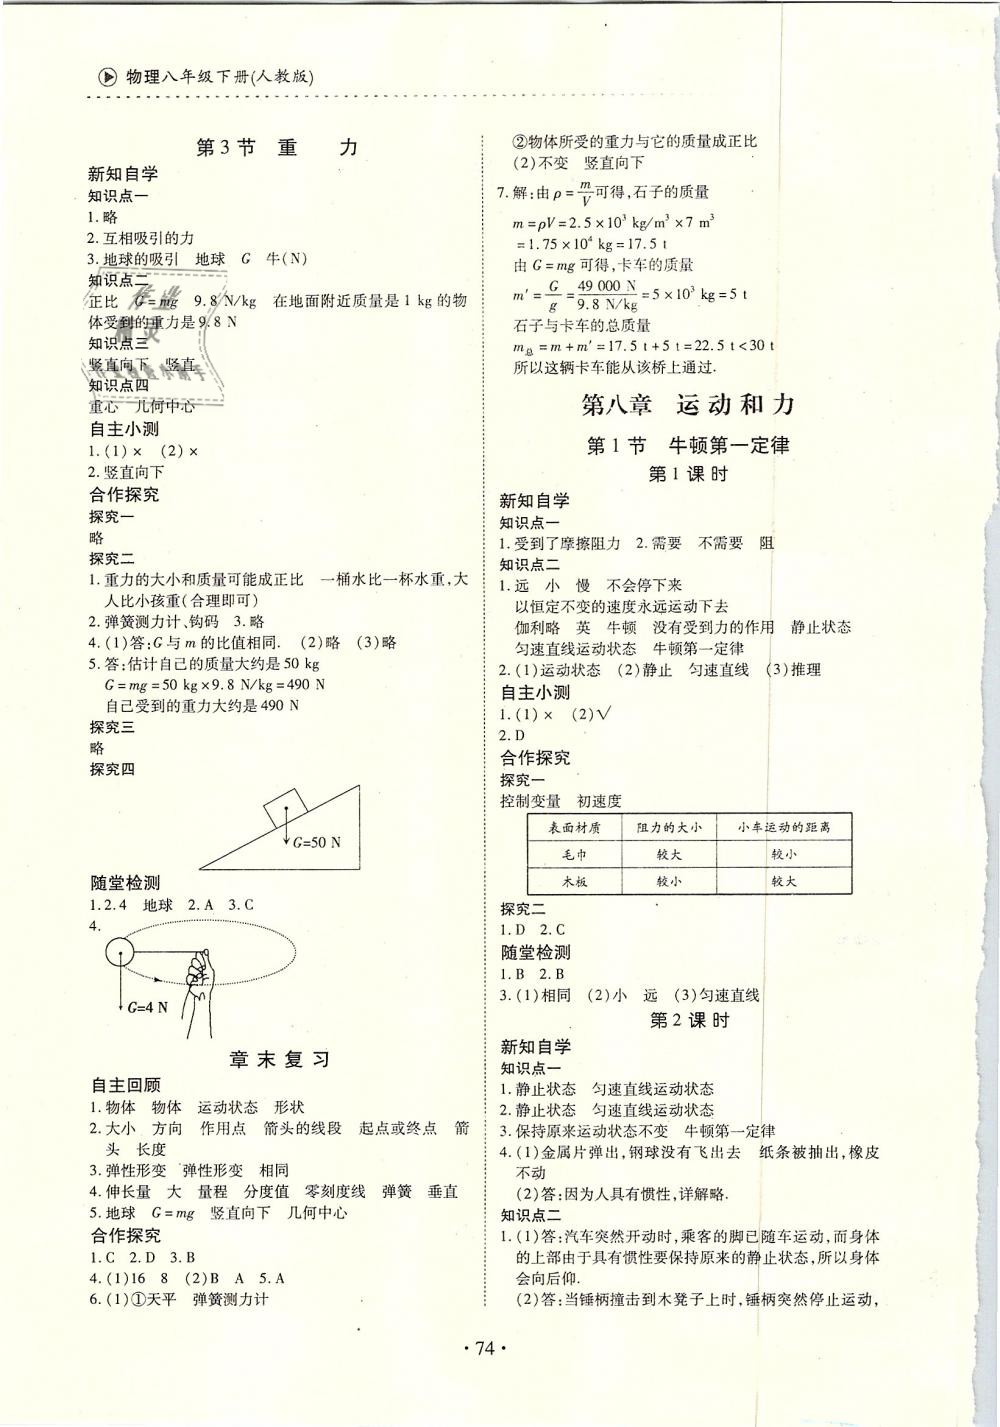 物理八年级下册(人教版)
第3节 重 力
新知自学
知识点一
1.略
2.互相吸引的力
3.地球的吸引 地球 G 牛(N)
知识点二
正比 G=mg 9.8 N/kg 在地面附近质量是1 kg的物
体受到的重力是9.8 N
知识点三
竖直向下 竖直
知识点四
重心 几何中心
自主小测
1.(1)× (2)×
2.竖直向下
合作探究
探究一
略
探究二
1.重力的大小和质量可能成正比 一桶水比一杯水重,大
人比小孩重(合理即可)
2.弹簧测力计、钩码 3.略
4.(1)答:G与m的比值相同. (2)略 (3)略
5.答:估计自己的质量大约是50 kg
G=mg=50 kg×9.8 N/kg=490 N
自己受到的重力大约是490 N
探究三
略
探究四
G=50 N
随堂检测
1.2.4 地球 2.A 3.C
4.
G=4 N
章末复习
自主回顾
1.物体 物体 运动状态 形状
2.大小 方向 作用点 箭头的线段 起点或终点 箭
头 长度
3.弹性形变 弹性形变 相同
4.伸长量 大 量程 分度值 零刻度线 弹簧 垂直
5.地球 G=mg 竖直向下 几何中心
合作探究
1.C 2.D 3.B
4.(1)16 8 (2)B A 5.A
6.(1)①天平 弹簧测力计
②物体所受的重力与它的质量成正比
(2)不变 竖直向下
7.解:由ρ=m/V可得,石子的质量
m=ρV=2.5×10³ kg/m³×7 m³
=1.75×10⁴ kg=17.5 t
由G=mg可得,卡车的质量
m′=G/g=49 000 N/9.8 N/kg=5×10³ kg=5 t
石子与卡车的总质量
m总=m+m′=17.5 t+5 t=22.5 t<30 t
所以这辆卡车能从该桥上通过.
第八章 运动和力
第1节 牛顿第一定律
第1课时
新知自学
知识点一
1.受到了摩擦阻力 2.需要 不需要 阻
知识点二
1.远 小 慢 不会停下来
以恒定不变的速度永远运动下去
伽利略 英 牛顿 没有受到力的作用 静止状态
匀速直线运动状态 牛顿第一定律
2.(1)运动状态 (2)静止 匀速直线 (3)推理
自主小测
1.(1)× (2)√
2.D
合作探究
探究一
控制变量 初速度
表面材质 阻力的大小 小车运动的距离
毛巾 较大 较小
木板 较小 较大
探究二
1.D 2.C
随堂检测
1.B 2.B
3.(1)相同 (2)小 远 (3)匀速直线
第2课时
新知自学
知识点一
1.静止状态 匀速直线运动状态
2.静止状态 匀速直线运动状态
3.保持原来运动状态不变 牛顿第一定律
4.(1)金属片弹出,钢球没有飞出去 纸条被抽出,橡皮
不动
(2)答:因为人具有惯性,详解略.
知识点二
1.(1)答:汽车突然开动时,乘客的脚已随车运动,而身体
的上部由于具有惯性要保持原来的静止状态,所以身体
会向后仰.
(2)答:当锤柄撞击到木凳子上时,锤柄突然停止运动,
·74·